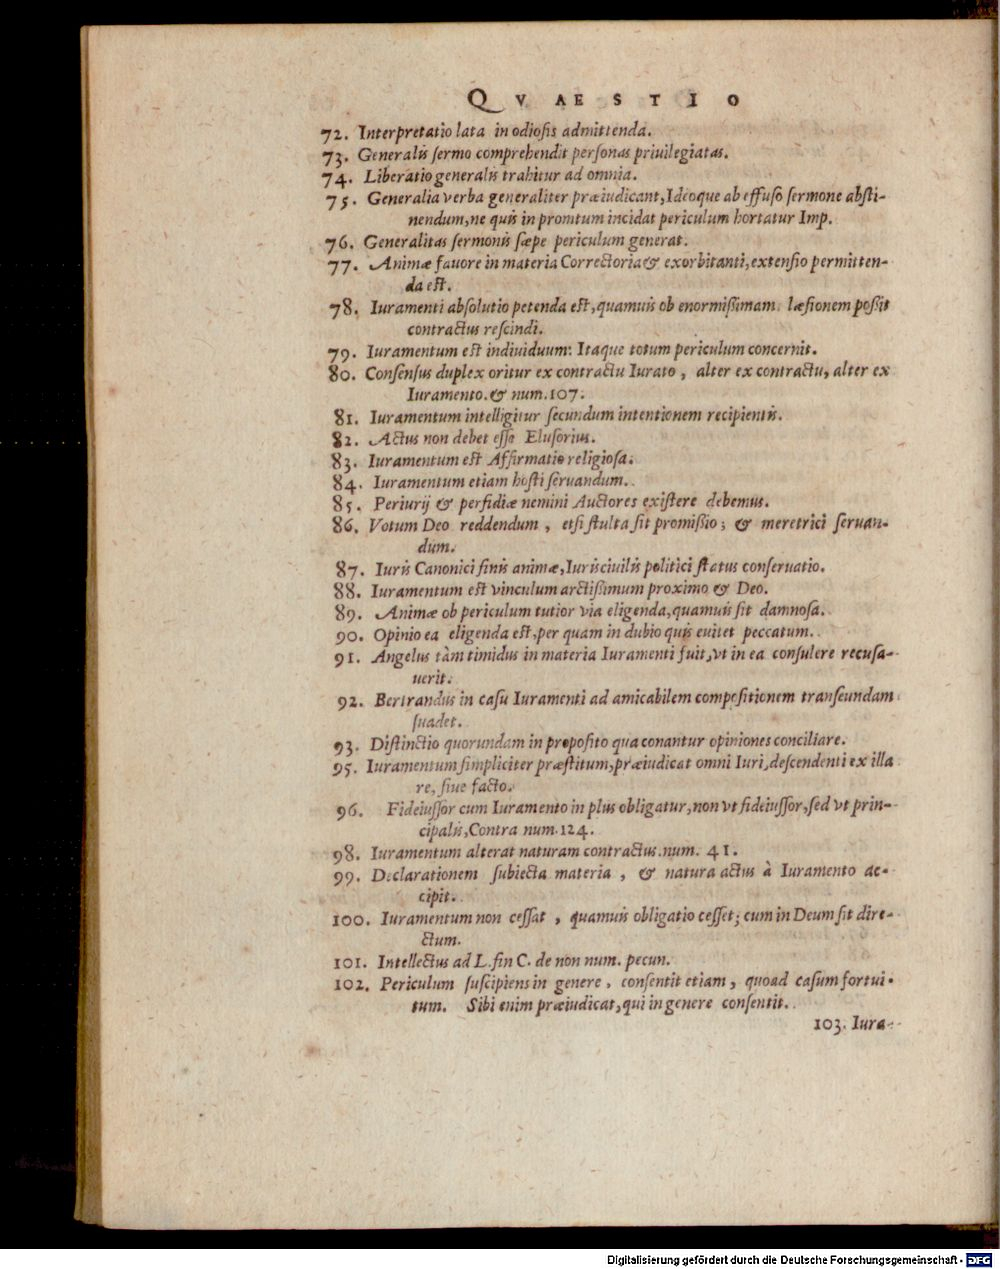 QVAESTIO
72. Interpretatio lata in odiosis admittenda.
73. Generalis sermo comprehendit personas priuilegiatas.
74. Liberatio generalis trahitur ad omnia.
75. Generalia verba generaliter præiudicant, Ideoque ab effuso sermone absti-
nendum, ne quis in promtum incidat periculum hortatur Imp.
76. Generalitas sermonis sæpe periculum generat.
77. Animæ fauore in materia Correctoria & exorbitanti, extensio permitten-
da est.
78. Iuramenti absolutio petenda est, quamuis ob enormissimam læsionem possit
contractus rescindi.
79. Iuramentum est indiuiduum: Itaque totum periculum concernit.
80. Consensus duplex oritur ex contractu Iurato, alter ex contractu, alter ex
Iuramento. & num. 107.
81. Iuramentum intelligitur secundum intentionem recipientis.
82. Actus non debet esse Elusorius.
83. Iuramentum est Affirmatio religiosa.
84. Iuramentum etiam hosti seruandum.
85. Periurij & perfidiæ nemini Auctores existere debemus.
86. Votum Deo reddendum, etsi stulta sit promissio; & meretrici seruan-
dum.
87. Iuris Canonici finis animæ, Iuris ciuilis politici status conseruatio.
88. Iuramentum est vinculum arctissimum proximo & Deo.
89. Animæ ob periculum tutior via eligenda, quamuis sit damnosa.
90. Opinio ea eligenda est, per quam in dubio quis euitet peccatum.
91. Angelus tàm timidus in materia Iuramenti fuit, vt in ea consulere recusa-
uerit.
92. Bertrandus in casu Iuramenti ad amicabilem compositionem transeundam
suadet.
93. Distinctio quorundam in proposito qua conantur opiniones conciliare.
95. Iuramentum simpliciter præstitum, præiudicat omni Iuri, descendenti ex illa
re, siue facto.
96. Fideiussor cum Iuramento in plus obligatur, non vt fideiussor, sed vt prin-
cipalis, Contra num. 124.
98. Iuramentum alterat naturam contractus. num. 41.
99. Declarationem subiecta materia, & natura actus à Iuramento ac-
cipit.
100. Iuramentum non cessat, quamuis obligatio cesset; cum in Deum sit dire-
ctum.
101. Intellectus ad L. fin C. de non num. pecun.
102. Periculum suscipiens in genere, consentit etiam, quoad casum fortui-
tum. Sibi enim præiudicat, qui in genere consentit.
103. Iura-
Digitalisierung gefördert durch die Deutsche Forschungsgemeinschaft - DFG